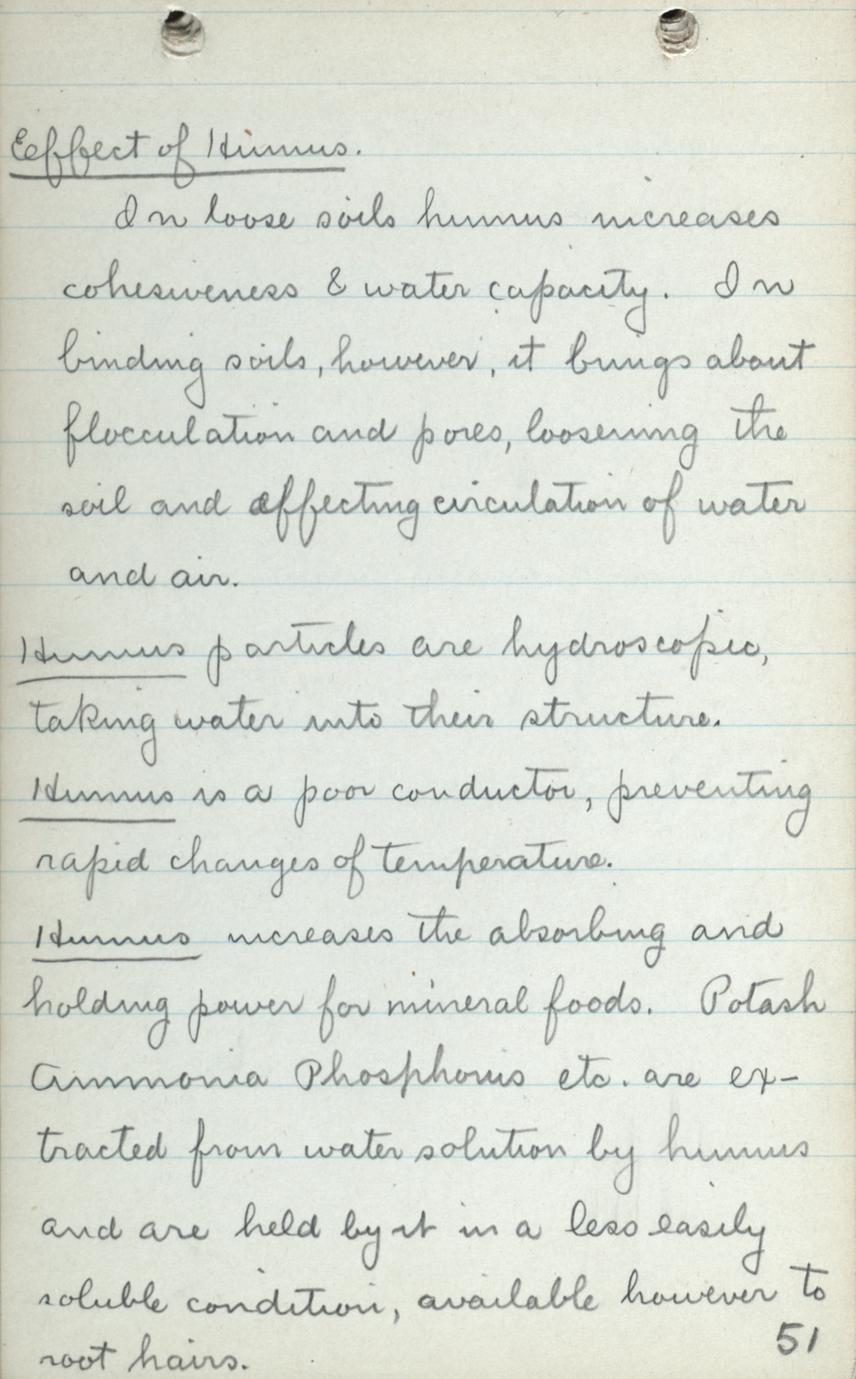 Eeffect of Humus.
In loose soils humus increases
cohesiveness & water capacity. In
binding soils, however, it brings about
flocculation and pores, loosening the
soil and affecting circulation of water
and air.
Humus particles are hydroscopic,
taking water into their structure.
Humus is a poor conductor, preventing
rapid changes of temperature.
Humus increases the absorbing and
holding power for mineral foods. Potash
Ammonia Phosphorus etc. are ex-
tracted from water solution by humus
and are held by it in a less easily
soluble condition, available however to
root hairs.
51